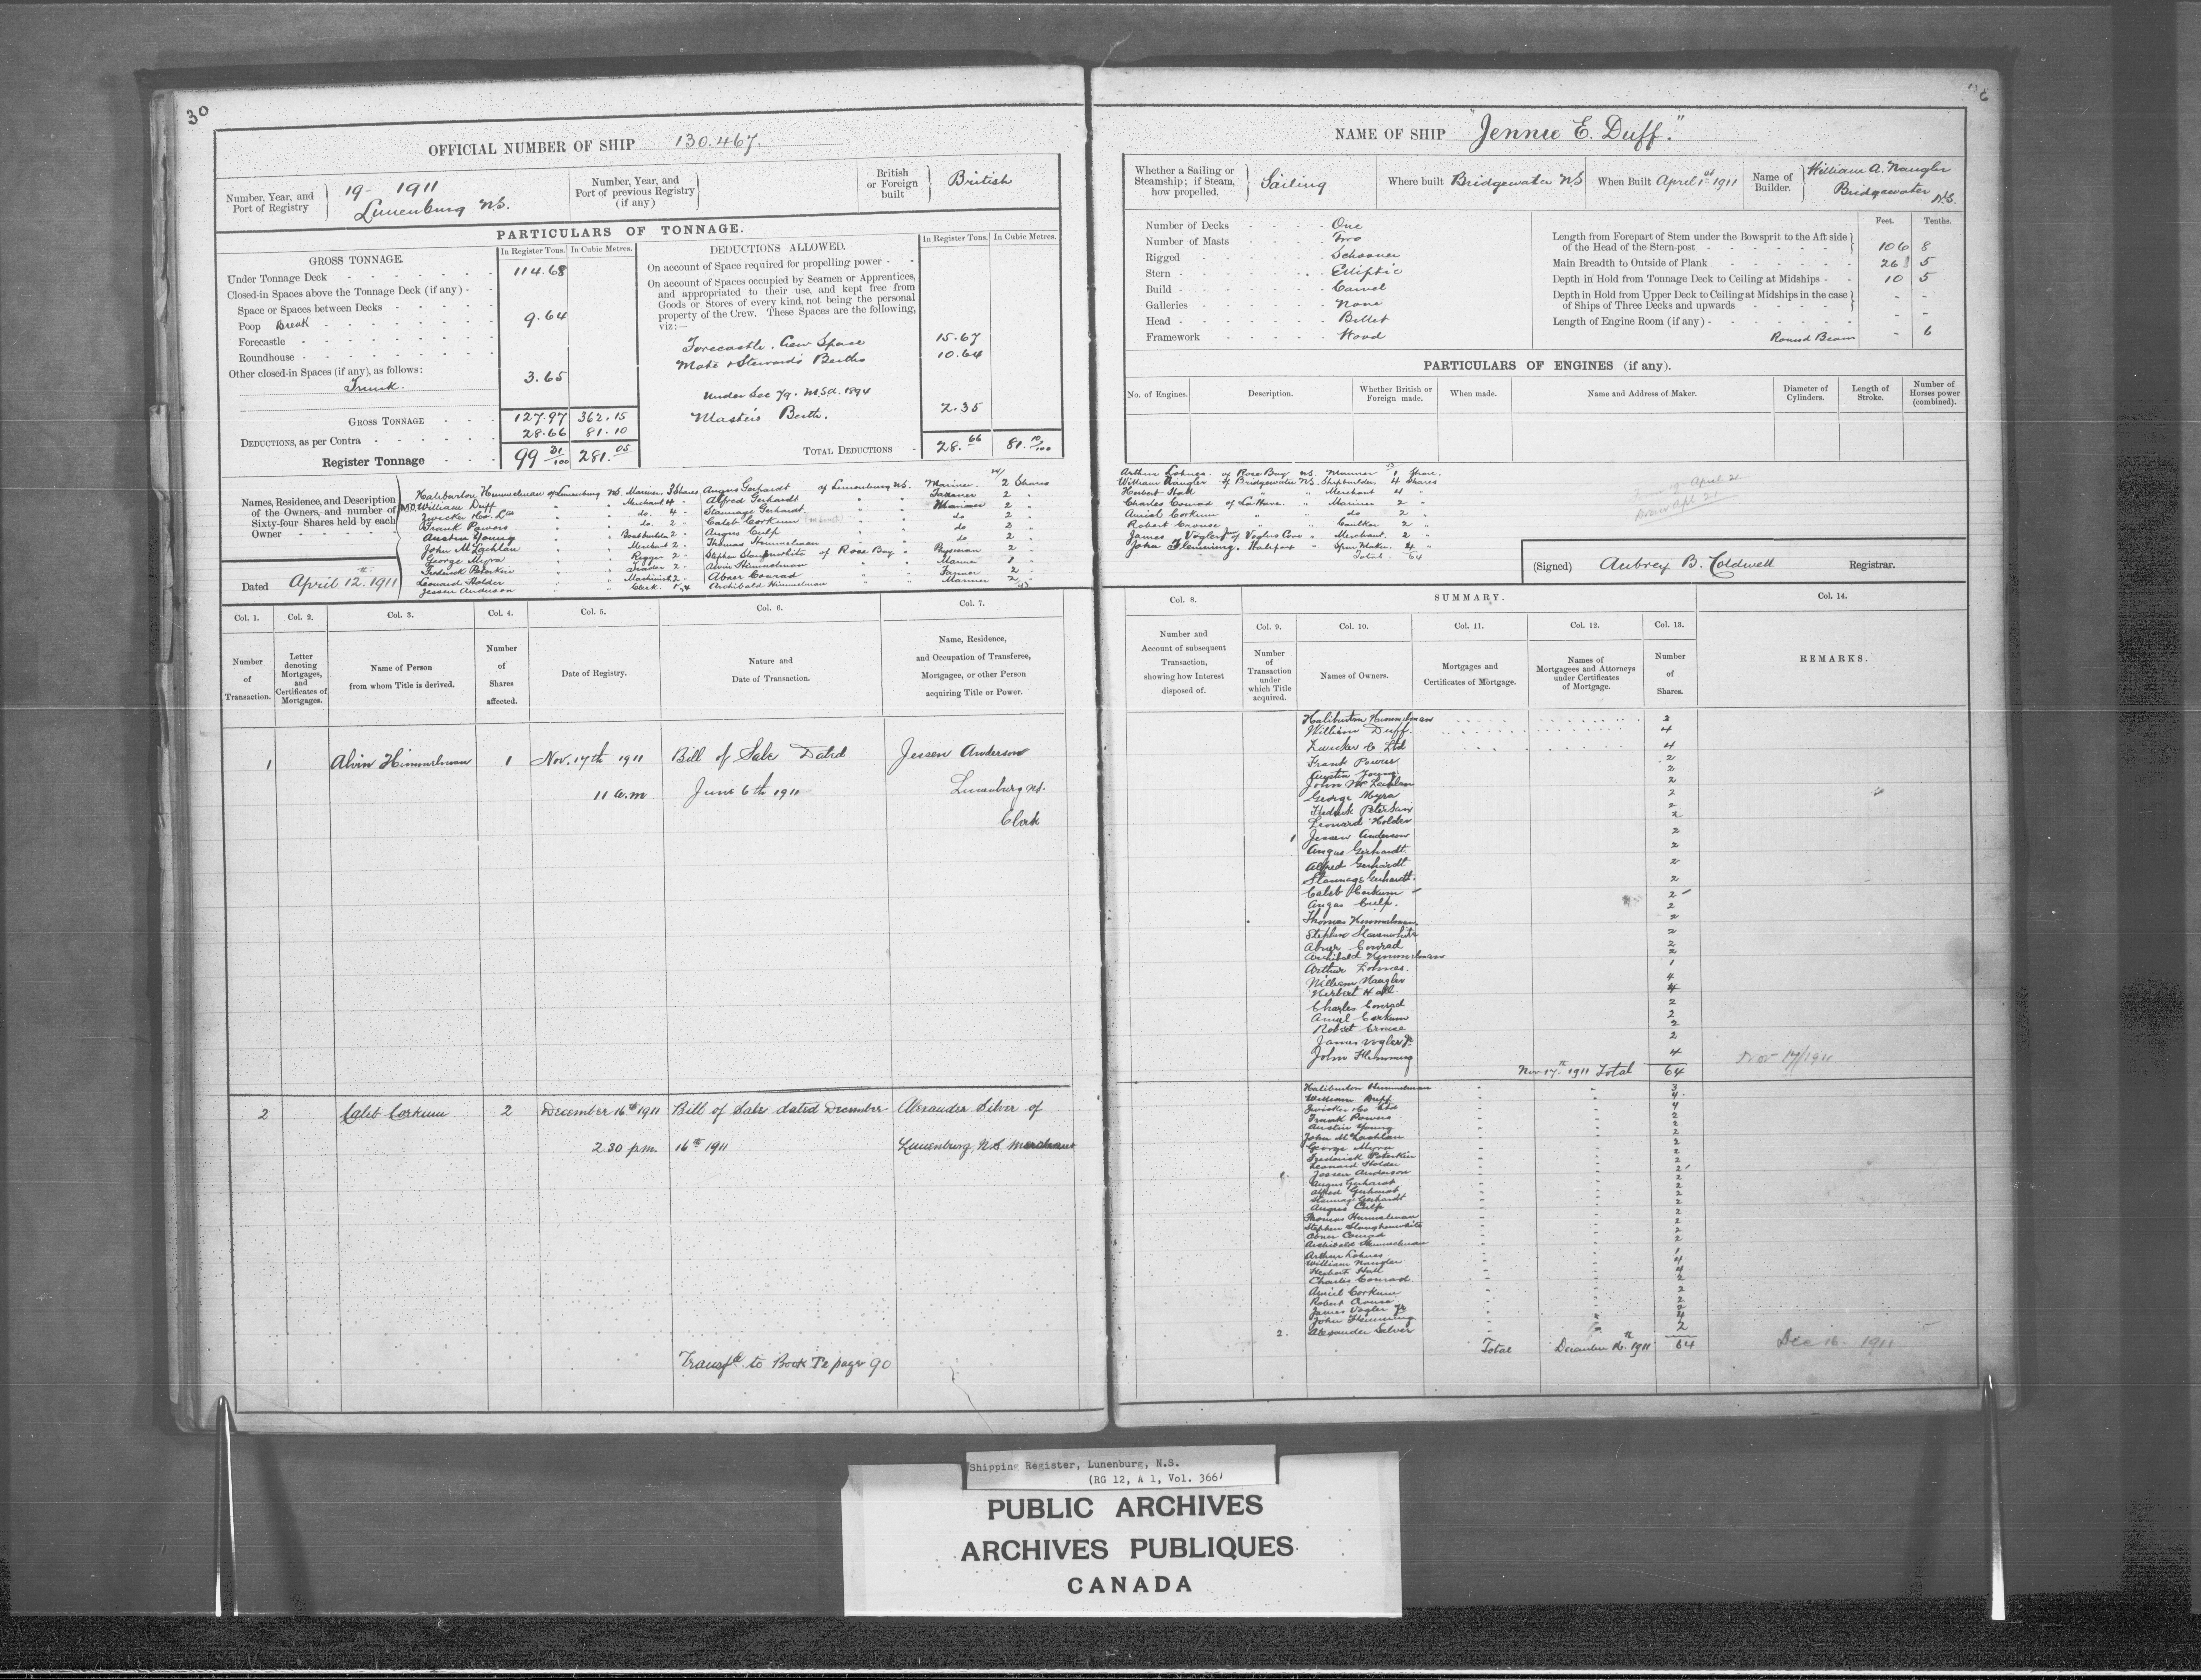 30
OFFICIAL NUMBER OF SHIP 130.467.
Number, Year, and Port of Registry } 19- 1911
Lunenburg N.S.
Number, Year, and Port of previous Registry (if any) }
British or Foreign built } British
PARTICULARS OF TONNAGE.
GROSS TONNAGE. In Register Tons. In Cubic Metres.
Under Tonnage Deck 114.68
Closed-in Spaces above the Tonnage Deck (if any)
Space or Spaces between Decks
Poop Break 9.64
Forecastle
Roundhouse
Other closed-in Spaces (if any), as follows:
Trunk. 3.65
GROSS TONNAGE 127.97 362.15
DEDUCTIONS, as per Contra 28.66 81.10
Register Tonnage 99 31/100 281.05
DEDUCTIONS ALLOWED. In Register Tons. In Cubic Metres.
On account of Space required for propelling power
On account of Spaces occupied by Seamen or Apprentices,
and appropriated to their use, and kept free from
Goods or Stores of every kind, not being the personal
property of the Crew. These Spaces are the following,
viz:—
Forecastle. Crew Space 15.67
Mate & Steward's Berths 10.64
Under Sec 79. M.S.A. 1894
Master's Berth. 2.35
TOTAL DEDUCTIONS 28.66 81.10/100
Names, Residence, and Description
of the Owners, and number of
Sixty-four Shares held by each
Owner
Haliburton Himmelman of Lunenburg N.S. Mariner 3 Shares
M.O. William Duff " " Merchant 4 "
Zwicker & Co. Ltd " " do. 4 "
Frank Powers " " do. 2 "
Austin Young " " Boatbuilder 2 "
John McLachlan " " Merchant 2 "
George Myra " " Rigger 2 "
Frederick Peterkin " " Trader 2 "
Leonard Holder " " Machinist 2 "
Jessen Anderson " " Clerk. 1
Angus Gerhardt of Lunenburg N.S. Mariner 2 Shares
Alfred Gerhardt " " 2 "
Stannage Gerhardt " " Mariner 2 "
Caleb Corkum " " do 2 "
Angus Culp " " do 2 "
Thomas Himmelman " " do 2 "
Stephen Slaughenwhite of Rose Bay " 2 "
Alvin Himmelman " " Mariner 1 "
Abner Conrad " " Farmer 2 "
Archibald Himmelman " " Mariner 2 "
Dated April 12.th 1911
Col. 1. Col. 2. Col. 3. Col. 4. Col. 5. Col. 6. Col. 7.
Number of Transaction.
Letter denoting Mortgages, and Certificates of Mortgages.
Name of Person from whom Title is derived.
Number of Shares affected.
Date of Registry.
Nature and Date of Transaction.
Name, Residence, and Occupation of Transferee, Mortgagee, or other Person acquiring Title or Power.
1 Alvin Himmelman 1 Nov. 17th 1911 Bill of Sale Dated Jessen Anderson
11 a.m June 6th 1911 Lunenburg N.S.
Clerk
2 Caleb Corkum 2 December 16th 1911 Bill of Sale dated December Alexander Silver of
2.30 p.m. 16th 1911 Lunenburg, N.S. Merchant
Transf'd to Book T2 page 90
NAME OF SHIP "Jennie E. Duff."
Whether a Sailing or Steamship; if Steam, how propelled. } Sailing
Where built Bridgewater NS
When Built April 1st 1911
Name of Builder. } William A. Naugler
Bridgewater N.S.
Number of Decks One
Number of Masts Two
Rigged Schooner
Stern Elliptic
Build Carvel
Galleries None
Head Billet
Framework Wood
Feet. Tenths.
Length from Forepart of Stem under the Bowsprit to the Aft side
of the Head of the Stern-post 106 8
Main Breadth to Outside of Plank 26 5
Depth in Hold from Tonnage Deck to Ceiling at Midships 10 5
Depth in Hold from Upper Deck to Ceiling at Midships in the case
of Ships of Three Decks and upwards - -
Length of Engine Room (if any) - -
Round Beam - 6
PARTICULARS OF ENGINES (if any).
No. of Engines. Description. Whether British or Foreign made. When made. Name and Address of Maker. Diameter of Cylinders. Length of Stroke. Number of Horses power (combined).
Arthur Lohnes. of Rose Bay NS. Mariner 1 Share.
William Naugler of Bridgewater NS. Shipbuilder, 4 Shares
Herbert Hall " " Merchant 4 "
Charles Conrad of La Have. " Mariner 2 "
Amiel Corkum " " do 2 "
Robert Crouse " " Caulker 2 "
James Vogler Jr of Voglers Cove " Merchant. 2 "
John Flemming. Halifax " Spar Maker. 4 "
Total 64
(Signed) Aubrey B. Coldwell Registrar.
Col. 8. SUMMARY. Col. 14.
Col. 9. Col. 10. Col. 11. Col. 12. Col. 13.
Number and Account of subsequent Transaction, showing how Interest disposed of.
Number of Transaction under which Title acquired.
Names of Owners.
Mortgages and Certificates of Mortgage.
Names of Mortgagees and Attorneys under Certificates of Mortgage.
Number of Shares.
REMARKS.
Haliburton Himmelman 3
William Duff. 4
Zwicker & Co Ltd 4
Frank Power 2
Austin Young 2
John McLachlan 2
George Myra 2
Frederick Peterkin 2
Leonard Holder 2
1 Jessen Anderson 2
Angus Gerhardt 2
Alfred Gerhardt 2
Stannage Gerhardt 2
Caleb Corkum 2
Angus Culp. 2
Thomas Himmelman 2
Stephen Slaunwhite 2
Abner Conrad 2
Archibald Himmelman 2
Arthur Lohnes. 1
William Naugler 4
Herbert Hall. 4
Charles Conrad 2
Amiel Corkum 2
Robert Crouse 2
James Vogler Jr 2
John Flemming 4
Nov 17th 1911 Total 64 Nov 17/1911
Haliburton Himmelman 3
William Duff 4
Zwicker & Co Ltd 4
Frank Powers 2
Austin Young 2
John McLachlan 2
George Myra 2
Frederick Peterkin 2
Leonard Holder 2
Jessen Anderson 2
Angus Gerhardt 2
Alfred Gerhardt 2
Stannage Gerhardt 2
Angus Culp 2
Thomas Himmelman 2
Stephen Slaughenwhite 2
Abner Conrad 2
Archibald Himmelman 2
Arthur Lohnes 1
William Naugler 4
Herbert Hall 4
Charles Conrad. 2
Amiel Corkum 2
Robert Crouse 2
James Vogler Jr 2
John Flemming 4
2. Alexander Silver 2
Total December 16th 1911 64 Dec 16. 1911
Shipping Register, Lunenburg, N.S.
(RG 12, A 1, Vol. 366)
PUBLIC ARCHIVES
ARCHIVES PUBLIQUES
CANADA